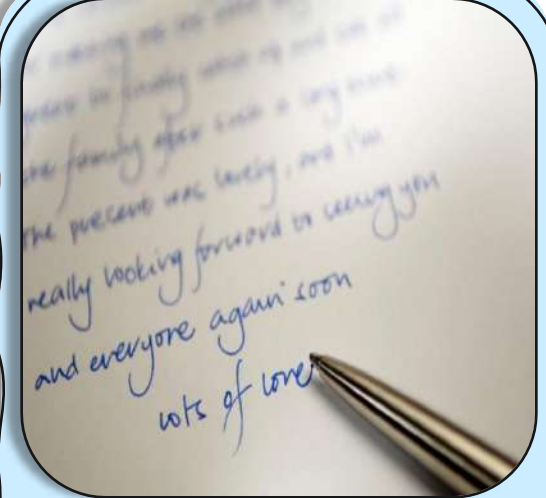 the family after such a long time
the present was lovely, and I'm
really looking forward to seeing you
and everyone again soon
lots of love